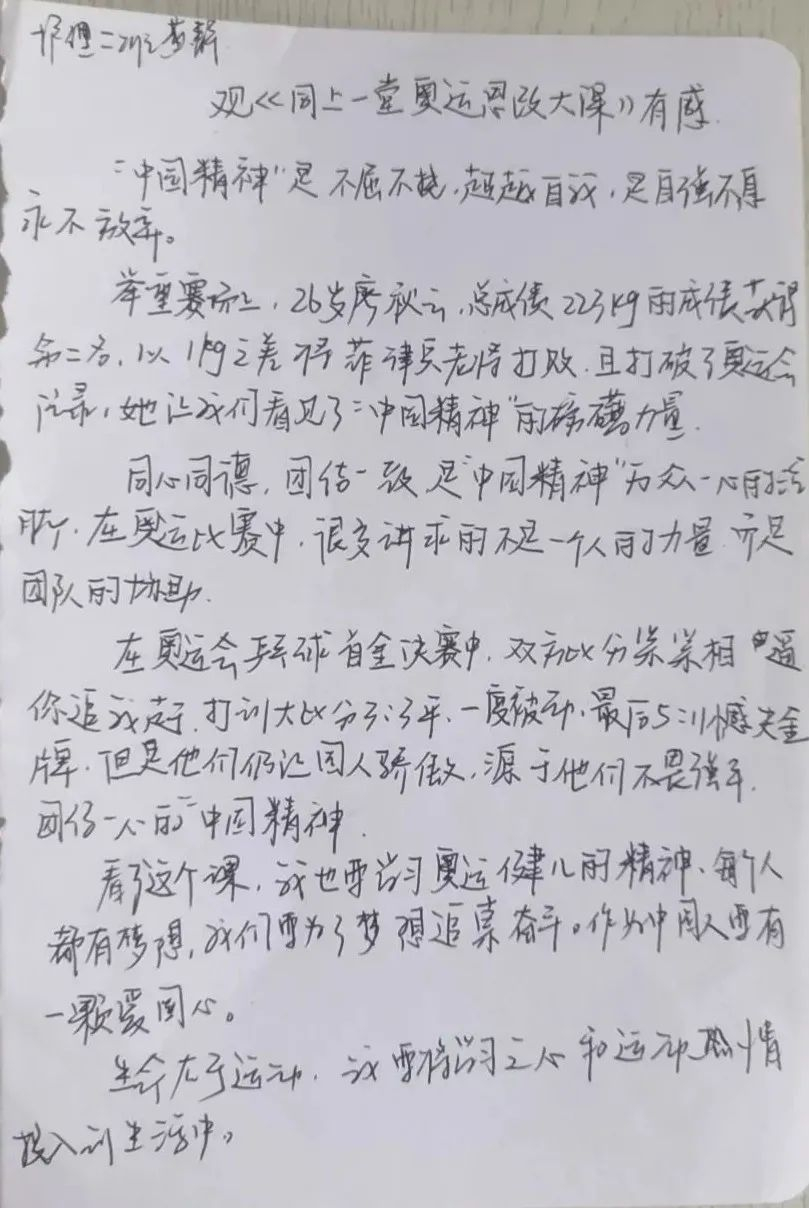 观《同上一堂奥运思政大课》有感
"中国精神"是不屈不挠,超越自我,是自强不息
永不放弃。
举重赛场上,26岁廖秋云,总成绩223kg的成绩获得
第二名,以1kg之差 菲律宾老将打败.且打破了奥运会
记录,她让我们看见了"中国精神"的磅礴力量.
同心同德,团结一致是"中国精神"万众一心的
在奥运比赛中,很多讲求的不是一个人的力量 而是
团队的协助.
在奥运会乒乓球首金决赛中,双方比分紧紧相逼
你追我赶,打到大比分3:3平,一度被动,最后 憾失金
牌.但是他们仍让国人骄傲,源于他们不畏强手,
团结一心的"中国精神.
看了这个课,我也要学习奥运健儿的精神、每个人
都有梦想,我们要为了梦想追求奋斗。作为中国人要有
一颗爱国心。
生命在于运动,我要将学习之心和运动热情
投入到生活中。